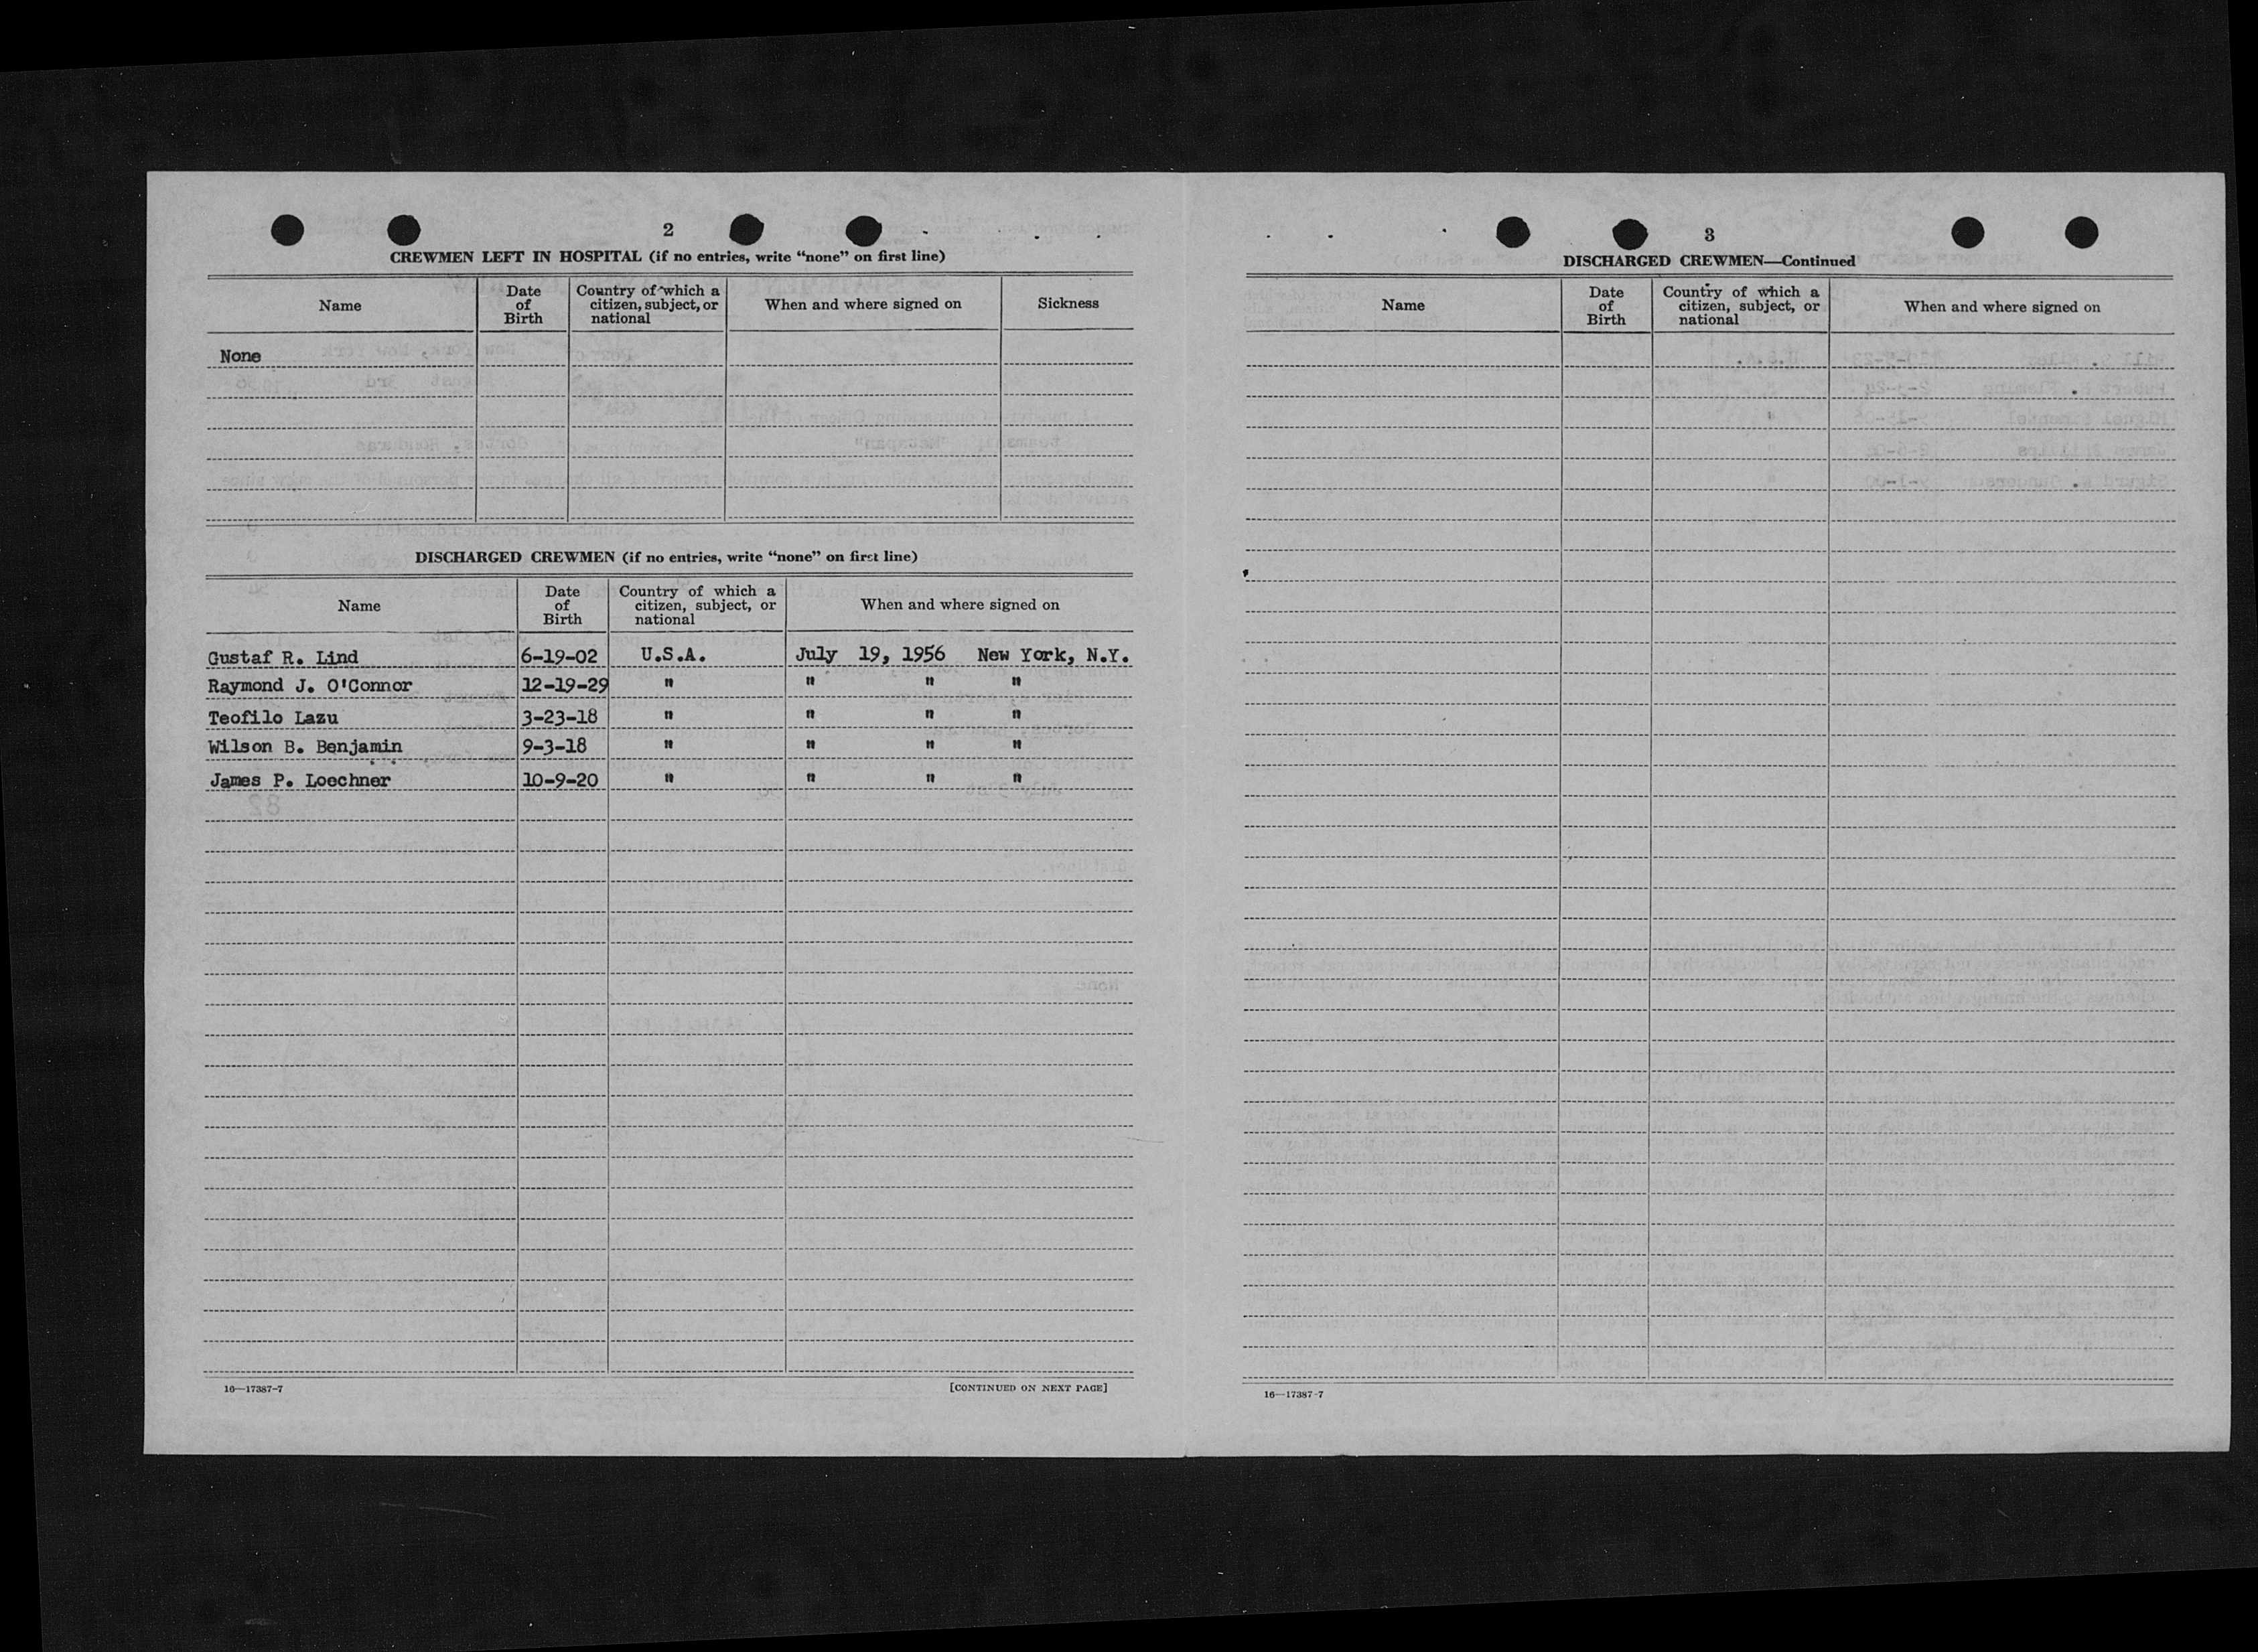 2
CREWMEN LEFT IN HOSPITAL (if no entries, write “none” on first line)
Name
Date of Birth
Country of which a citizen, subject, or national
When and where signed on
Sickness
None
DISCHARGED CREWMEN (if no entries, write “none” on first line)
Name
Date of Birth
Country of which a citizen, subject, or national
When and where signed on
Gustaf R. Lind 6-19-02 U.S.A. July 19, 1956 New York, N.Y.
Raymond J. O'Connor 12-19-29 " " " "
Teofilo Lazu 3-23-18 " " " "
Wilson B. Benjamin 9-3-18 " " " "
James P. Loechner 10-9-20 " " " "
16—17387-7
[CONTINUED ON NEXT PAGE]
3
DISCHARGED CREWMEN—Continued
Name
Date of Birth
Country of which a citizen, subject, or national
When and where signed on
16—17387-7